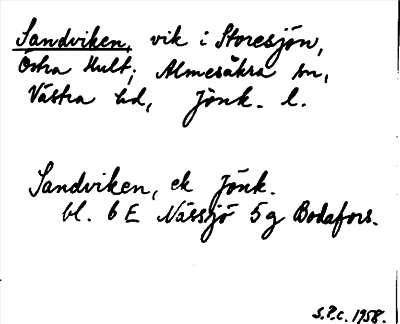 Sandviken, vik i Storesjön,
Östra Hult; Almesåkra sn,
Västra hd, Jönk. l.
Sandviken, ek Jönk.
bl. 6 E Nässjö 5 g Bodafors.
S.P.C. 1958.